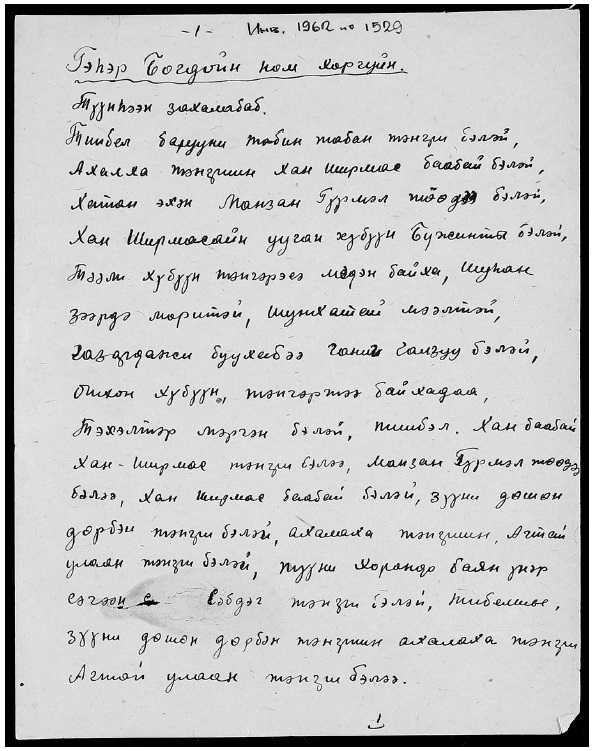 -1- Инв. 1962 № 1529
Гэһэр Богдойн ном хоргуйн.
Түүнһээн захалабаб.
Тиибел баруунй табин табан тэнгри бэлэй,
Ахалха тэнгриин Хан Ширмас баабай бэлэй,
Хатан эхэн Манзан Гүрмэл төөдэй бэлэй,
Хан Ширмасайн ууган хүбүүн Бужинты бэлэй,
Тээли хүбүүн тэнгэрээсэ мэдэн байха, Шуһан
зээрдэ моритэй,
буухабаа бэлэй,
Отхон хүбүүн, тэнгэртээ байхадаа,
Тэхэлтэр мэргэн бэлэй, тиибэл. Хан баабай
Хан-Ширмас тэнгри бэлээ, Манзан Гүрмэл төөдэй
бэлээ, Хан Ширмас баабай бэлэй, зүүни дөшөн
дөрбэн тэнгри бэлэй, ахамаха тэнгриин, Атай
улаан тэнгри бэлэй, түүни хорондо баян
сэгээн Сэбдэг тэнгри бэлэй,
зүүни дөшөн дөрбэн тэнгриин ахалаха тэнгри
Атай улаан тэнгри бэлээ.
1